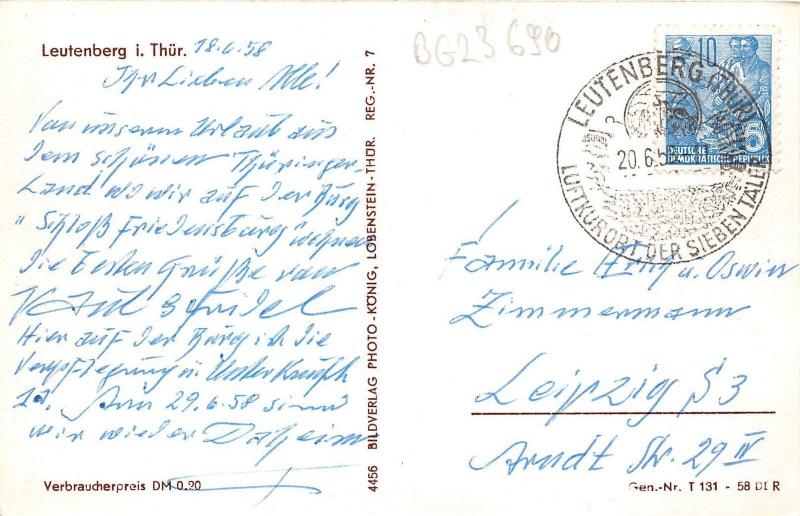 Leutenberg i. Thür. 18.6.58
Ihr Lieben Alle!
Von unserm Urlaub aus
dem schönen Thüringer-
Land wo wir auf der Burg
"Schloß Friedensburg" wohnen
die besten Grüße von
Hier auf der Burg ist die
Verpflegung u. Unterkunft
1a. Am 29.6.58 sind
wir wieder Daheim
Verbraucherpreis DM 0.20
4456 BILDVERLAG PHOTO-KÖNIG, LOBENSTEIN-THÜR. REG.-NR. 7
BG23 690
10
5
DEUTSCHE
DEMOKRATISCHE REPUBLIK
LEUTENBERG (THÜR)
20.6.5
LUFTKURORT DER SIEBEN TÄLER
Familie u. Oswin
Zimmermann
Leipzig S3
Arndt Str. 29 IV
Gen.-Nr. T 131 - 58 DDR